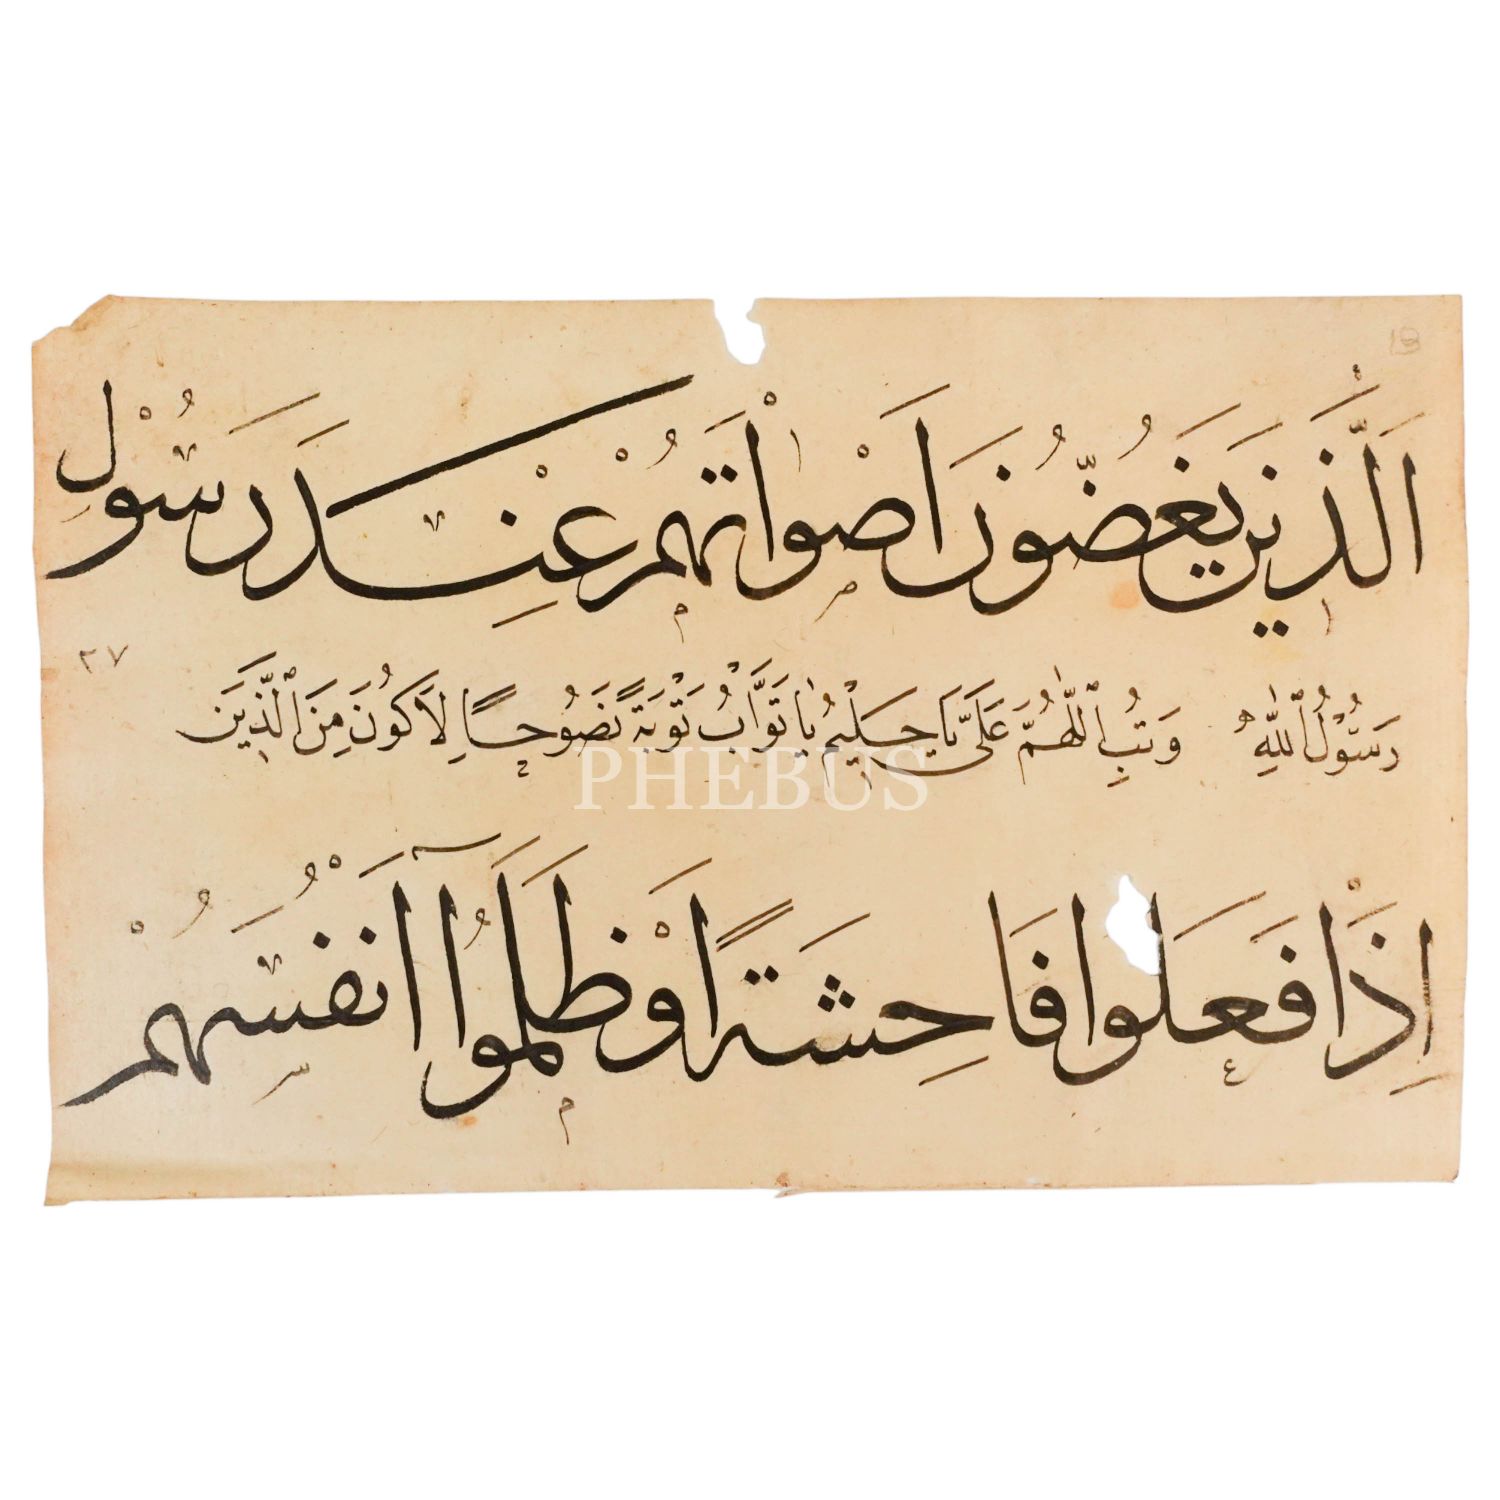 اَلَّذ۪ينَ يَغُضُّونَ اَصْوَاتَهُمْ عِنْدَ رَسُولِ
٢٧
رَسُولُ اللهِ وَتُبِ اللّٰهُمَّ عَلَيَّ يَا حَلِيمُ يَا تَوَّابُ تَوْبَةً نَصُوحاً لِاَكُونَ مِنَ الَّذِينَ
PHEBUS
اِذَا فَعَلُوا فَاحِشَةً اَوْ ظَلَمُوا اَنْفُسَهُمْ